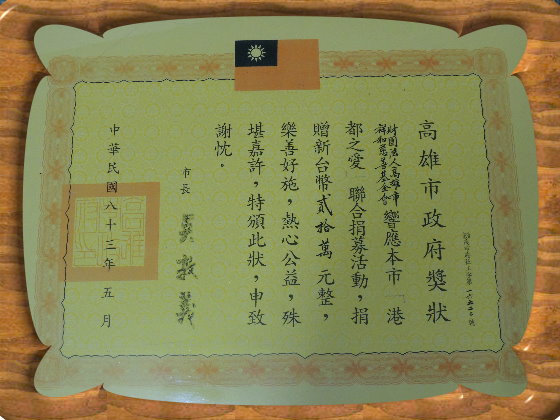 高雄市政府獎狀
財團法人高雄市
祥和慈善基金會
響應本市「港
都之愛」聯合捐募活動，捐
贈新台幣貳拾萬元整，
樂善好施，熱心公益，殊
堪嘉許，特頒此狀，申致
謝忱。
市長 吳敦義
中華民國八十三年五月